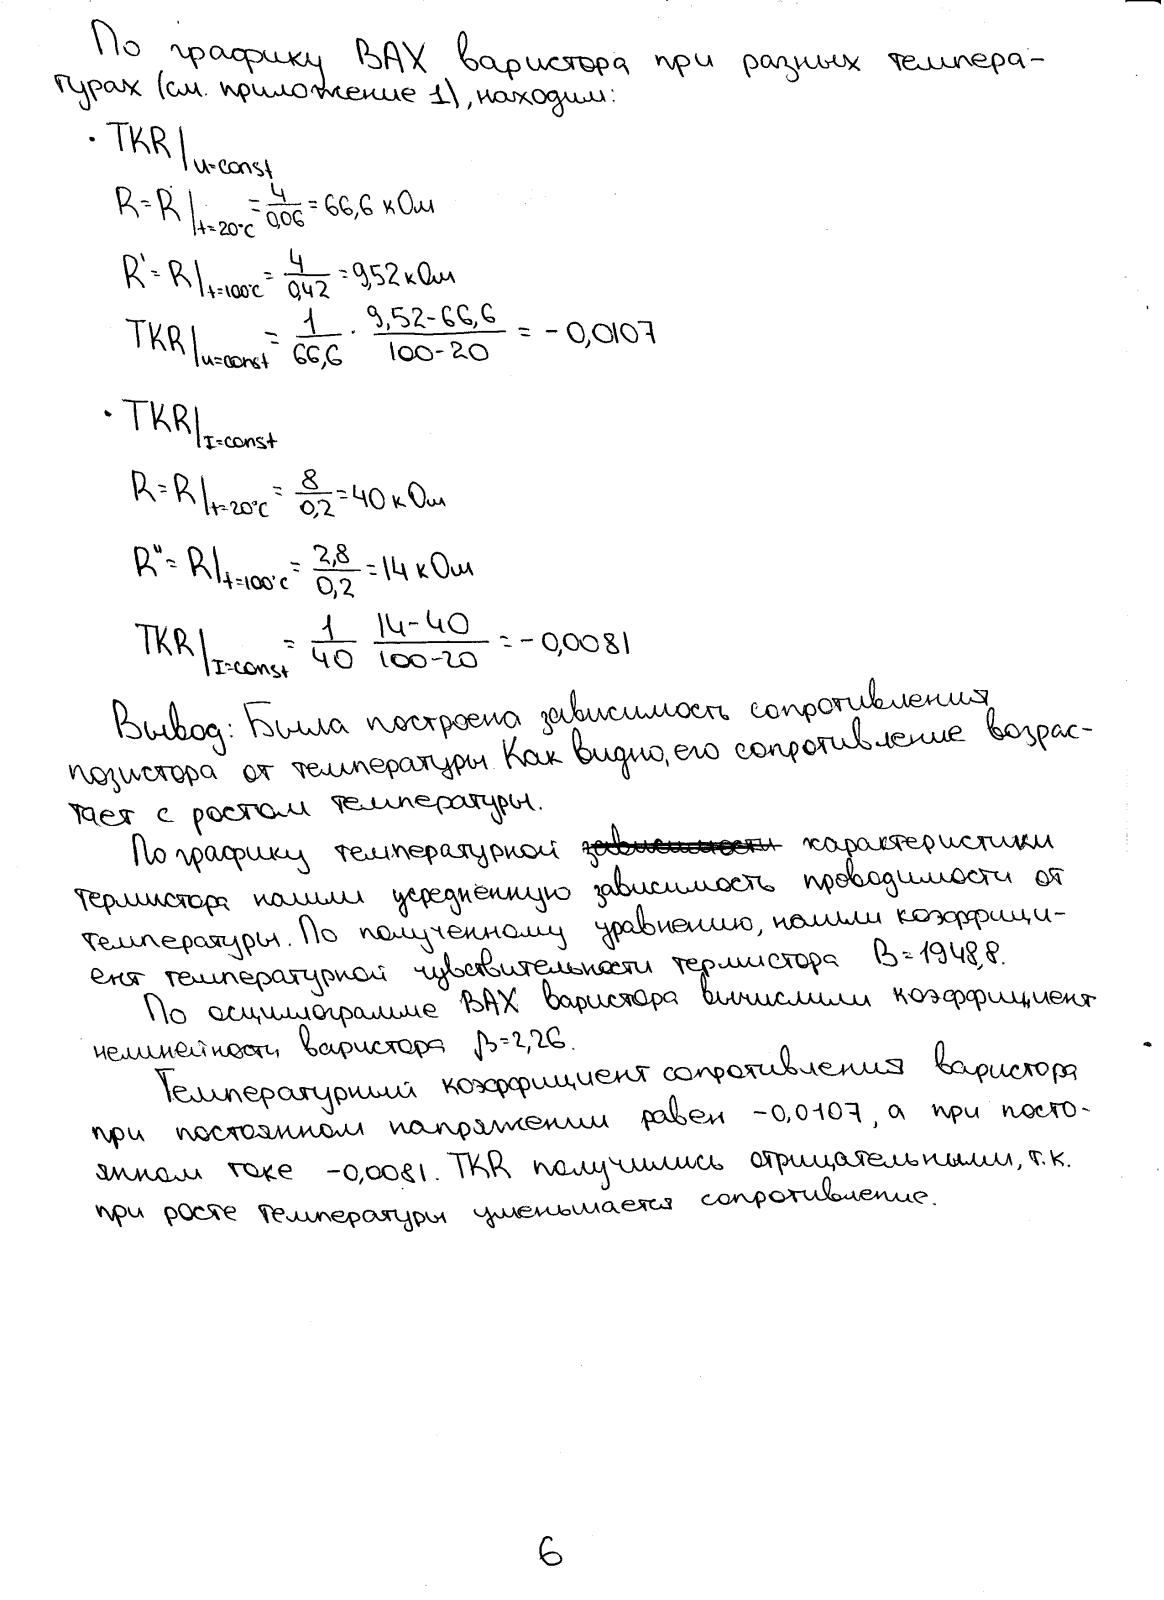 По графику ВАХ варистора при разных темпера-
турах (см. приложение 1), находим:
· TKR|u=const
R=R|t=20°C = 4/0,06 = 66,6 кОм
R'=R|t=100°C = 4/0,42 = 9,52 кОм
TKR|u=const = 1/66,6 · (9,52-66,6)/(100-20) = -0,0107
· TKR|I=const
R=R|t=20°C = 8/0,2 = 40 кОм
R"=R|t=100°C = 2,8/0,2 = 14 кОм
TKR|I=const = 1/40 (14-40)/(100-20) = -0,0081
Вывод: Была построена зависимость сопротивления
позистора от температуры. Как видно, его сопротивление возрас-
тает с ростом температуры.
По графику температурной зависимости характеристики
термистора нашли усреднённую зависимость проводимости от
температуры. По полученному уравнению, нашли коэффици-
ент температурной чувствительности термистора B=1948,8.
По осциллограмме ВАХ варистора вычислили коэффициент
нелинейности варистора β=2,26.
Температурный коэффициент сопротивления варистора
при постоянном напряжении равен -0,0107, а при посто-
янном токе -0,0081. TKR получились отрицательными, т.к.
при росте температуры уменьшается сопротивление.
6